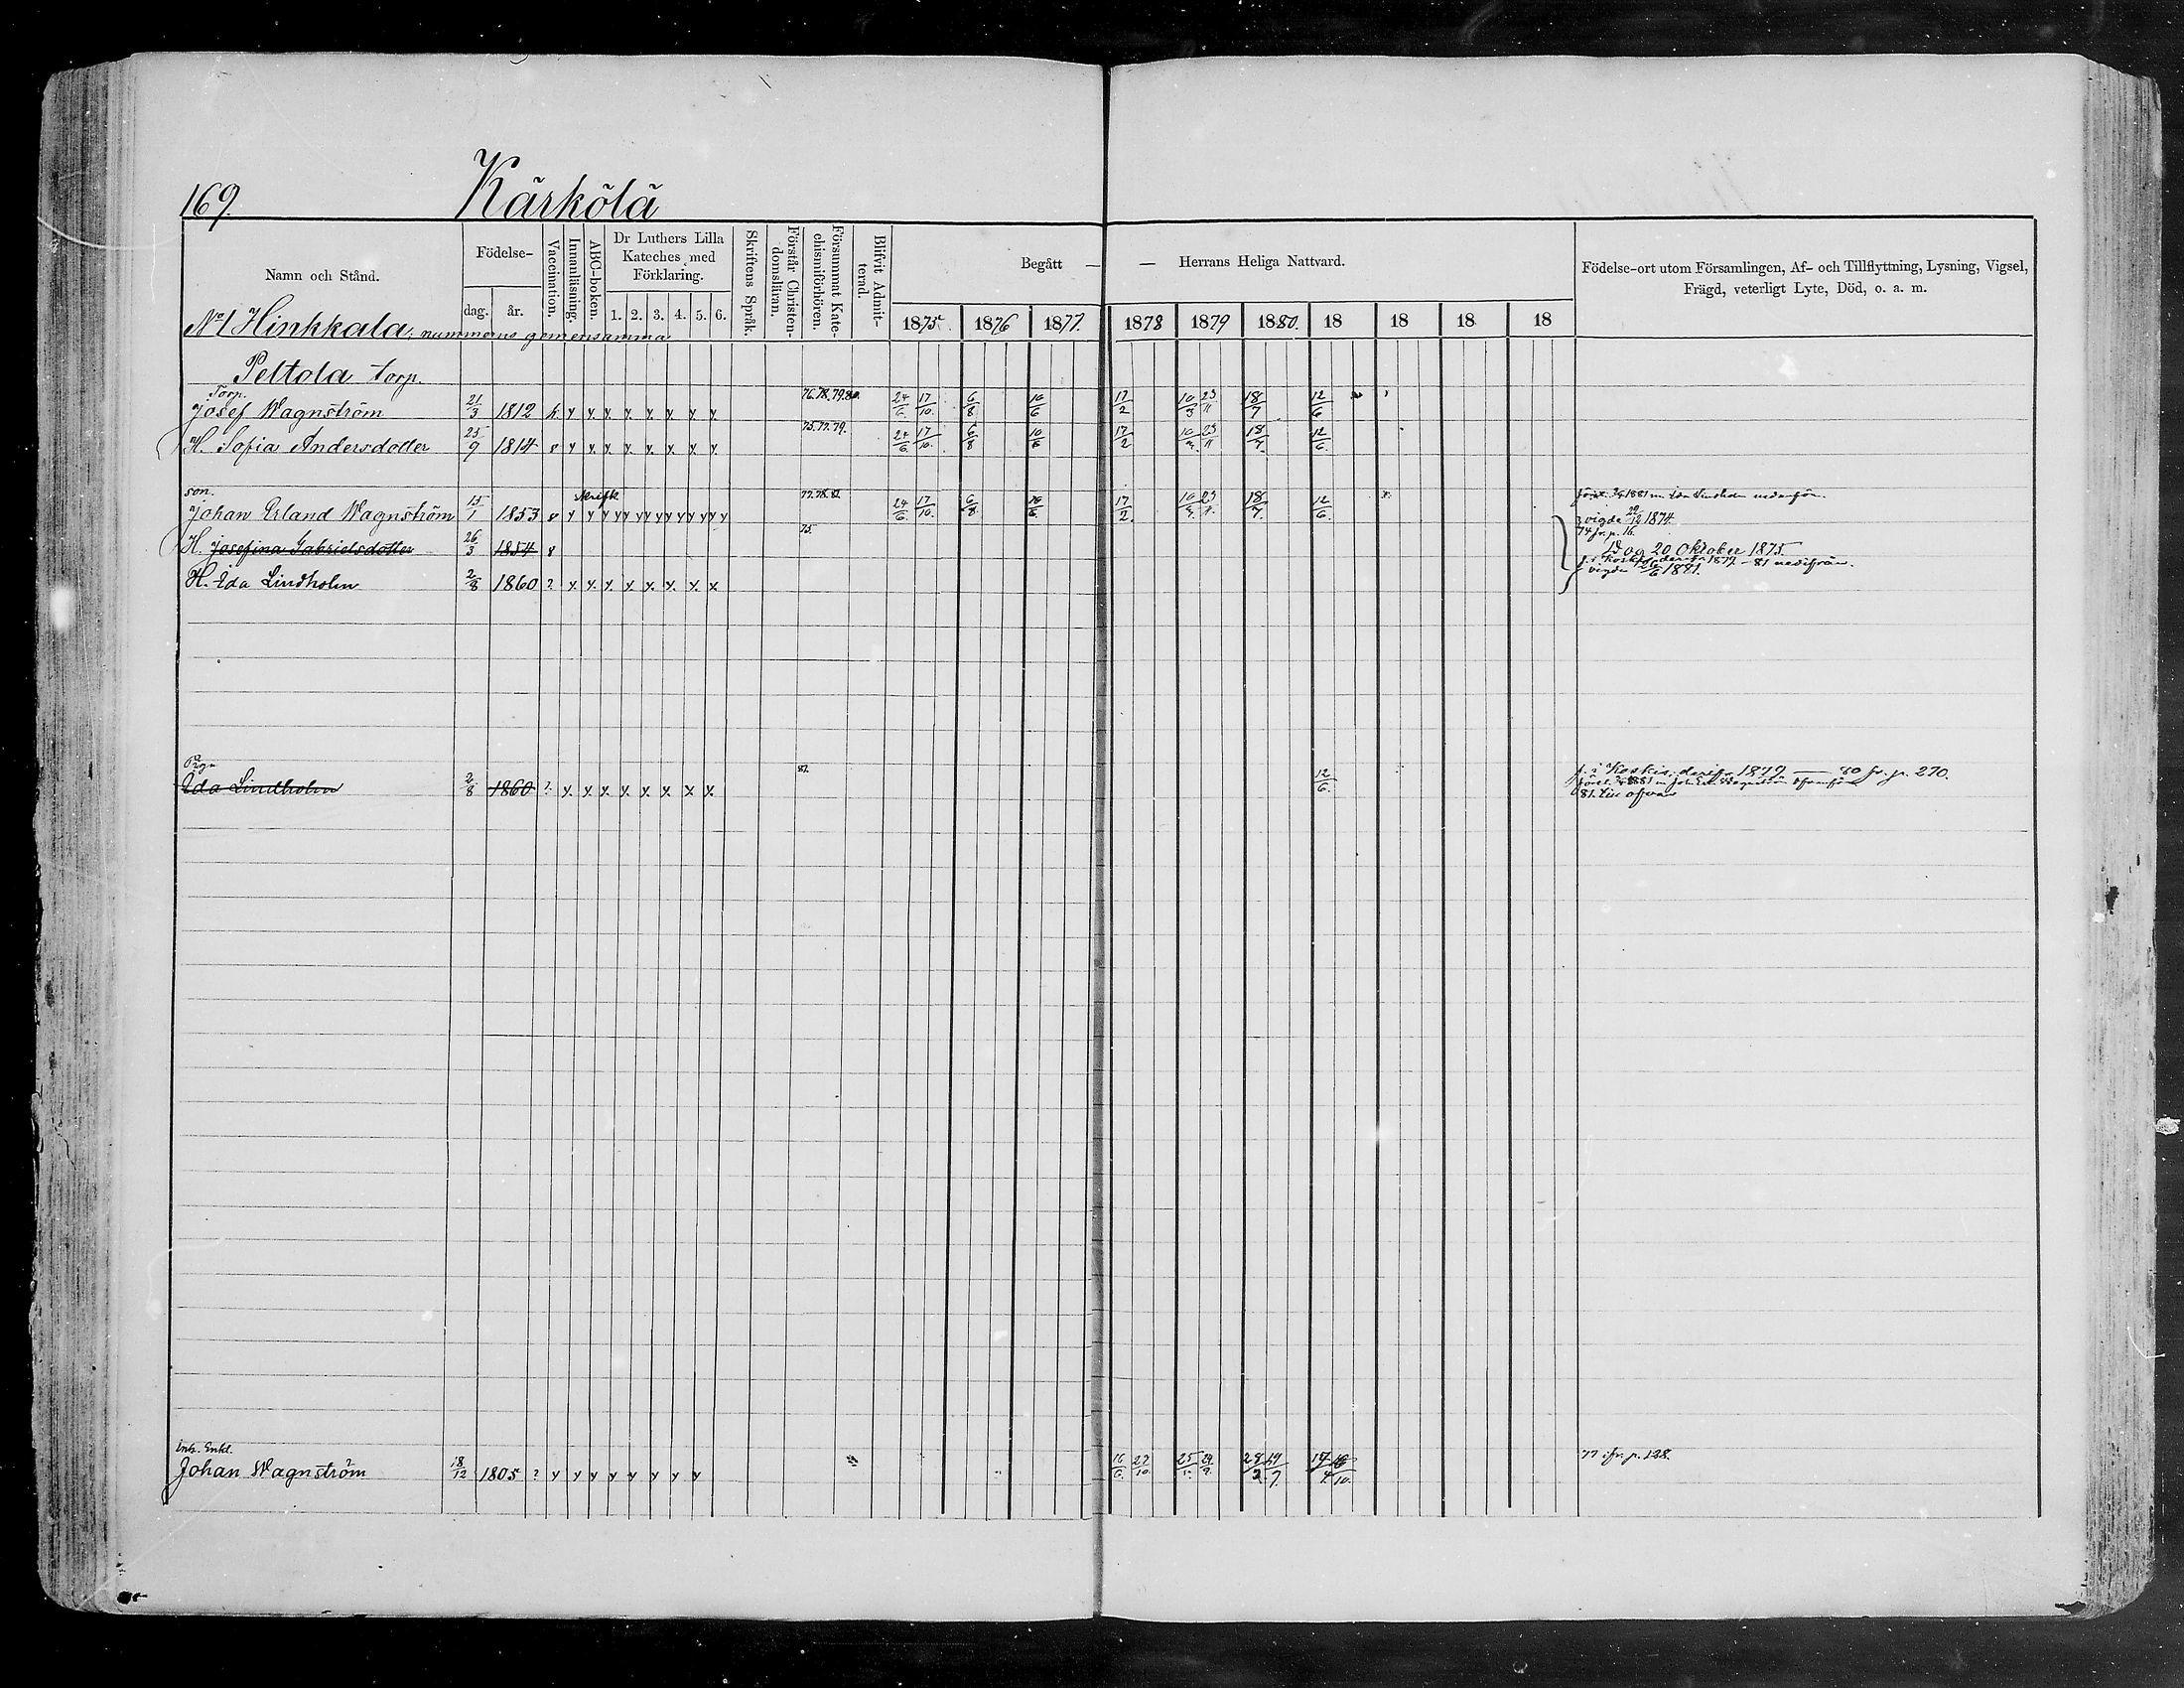 169. Kärkölä
Namn och Stånd.
Födelse-
dag. år.
Vaccination.
Innanläsning.
ABC-boken.
Dr Luthers Lilla
Kateches med
Förklaring.
1. 2. 3. 4. 5. 6.
Skriftens Språk.
Förstår Christen-
domsläran.
Försummat Kate-
chismiförhören.
Blifvit Admit-
terad.
Begått — — Herrans Heliga Nattvard.
1875 1876 1877. 1878 1879 1880. 18 18 18 18
Födelse-ort utom Församlingen, Af- och Tillflyttning, Lysning, Vigsel,
Frägd, veterligt Lyte, Död, o. a. m.
No 1 Hinkkala, nummerns gemensamma
Peltola torp.
Torp. 76. 78. 79. 80.
Josef Wagnström 21/3 1812 h y y y y y y y y 24/6. 17/10. 6/8 10/6 17/2 10/3 23/11 18/7 12/6
75. 77. 79.
H. Sofia Andersdotter 25/9 1814 v y y y y y y y y 24/6. 17/10. 6/8 10/6 17/2 10/3 23/11 18/7. 12/6.
son. skrifk 77. 78. 81. 1881 m. Ida Lindholm nedanför.
Johan Erland Wagnström 15/1 1853 v y y y yy yy yy yy yy y 24/6. 17/10. 6/8 10/6. 17/2. 18/7. 12/6. vigde 22/12 1874
75. 74 fr. p. 16.
H. Josefina Gabrielsdotter 26/3 1854 v Dog 20 Oktober 1875.
f. i Koskis 1879 - 81 nedifrån.
H. Ida Lindholm 2/8 1860 ? y. y. y. y. y. y. y. x vigde 26/6 1881.
Pig. 81.
Ida Lindholm 2/8 1860 ? y. y. y. y. y. y. x y. 12/6. f. i Koskis, derifr. 1879 — 80 fr. p. 270.
1881 m. Joh. Erl. Wagnström ofvanför
81. till ofvan
Inh. Enkl.
Johan Wagnström 18/12 1805 ? y y y y y y y y 16/6. 27/10. 77 ifr. p. 128.